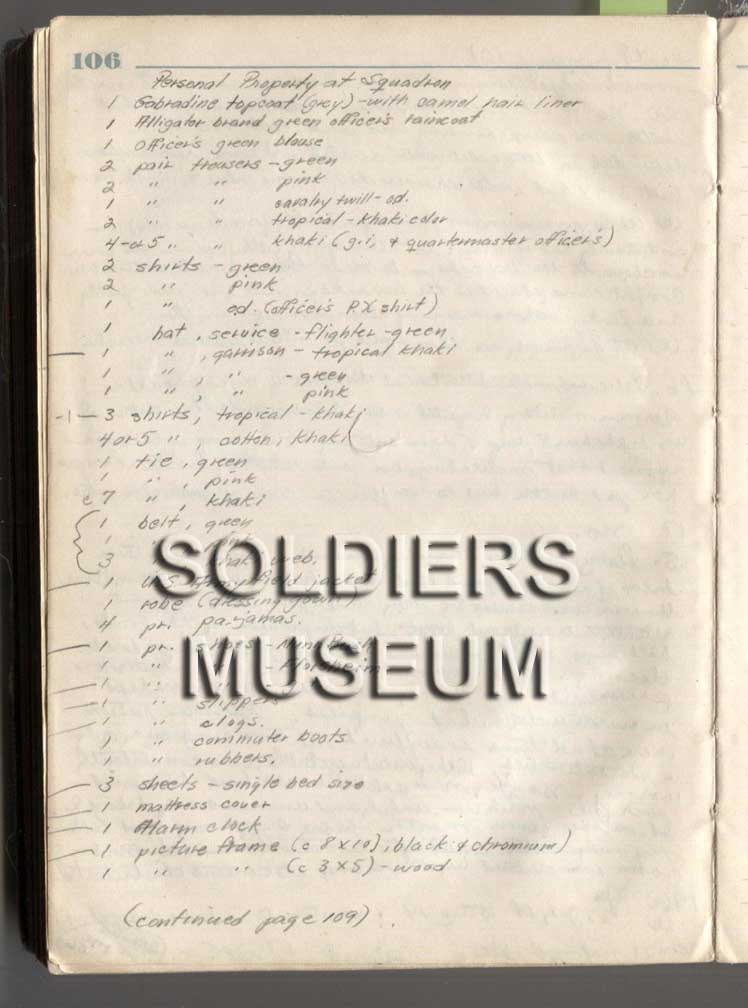 106
Personal Property at Squadron
1 Gabradine topcoat (grey) - with camel hair liner
1 Alligator brand green officer's raincoat
1 Officer's green blouse
2 pair trousers - green
2 " " pink
1 " " cavalry twill - od.
2 " " tropical - khaki color
4-or 5 " " khaki (g.i. & quartermaster officer's)
2 shirts - green
2 " pink
1 " od. (officer's P.X shirt)
1 hat, service - flighter - green
1 " , garrison - tropical khaki
1 " , " - green
1 " , " pink
-1- 3 shirts, tropical - khaki
4 or 5 " , cotton, khaki
1 tie, green
1 " , pink
c 7 " , khaki
1 belt, green
1 " , pink
3 khaki web.
1 U.S. Army field jacket
1 robe (dressing gown)
4 pr. pajamas.
1 pr. shoes -
1 " " - Florsheim
1 " "
1 " slippers
1 " clogs.
1 " commuter boots
1 " rubbers.
3 sheets - single bed size
1 mattress cover
1 Alarm clock
1 picture frame (c 8 x 10), black & chromium)
1 " " (c 3 x 5) - wood
(continued page 109).
SOLDIERS
MUSEUM